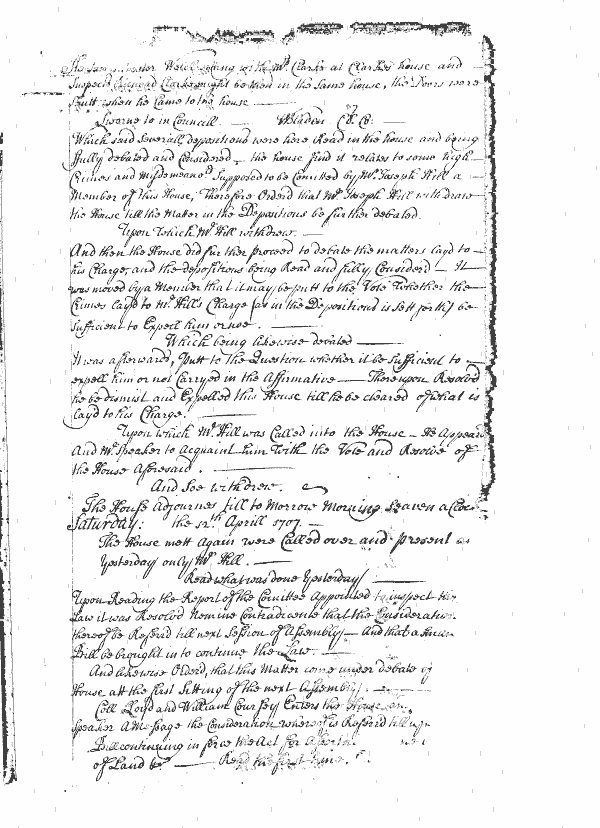 Clarke at Clarkes house and
Suspects Clarke might be then in the same house, the Doors were
Shutt when he came to the house
Sworne to in Councill. WBladen Cl. Co:
Which said severall depositions were here Read in the house and being
ffully debated and Considered the house find it relates to some high
Crimes and misdemeanors Supposed to be Comitted by Mr. Joseph Hill a
Member of this House, Therefore Orderd that Mr. Joseph Hill withdraw
the House till the Matter in the Depositions be further debated.
Upon which Mr. Hill withdrew.
And then the House did further proceed to debate the matters layd to
his Charge, and the depositions being Read and fully Considerd It
was moved by a Member that it may be putt to the Vote Whether the
Crimes layd to Mr. Hill's Charge (as in the Depositions is sett forth) be
Sufficient to Expell him or noe.
Which being likewise debated
It was afterwards, putt to the Question whether it be Sufficient to
expell him or not Carryed in the Affirmative Thereupon Resolvd
he be dismist and Expelled this House till he be cleared of what is
layd to his Charge.
Upon which Mr. Hill was Called into the House He Appeard
And Mr. Speaker to Acquaint him With the Vote and Resolve of
the House Aforesaid.
And Soe withdrew.
The House Adjournes till to Morrow Morning Seaven a Clock
Saturday: the 12th Aprill 1707.
The House mett Again were Called over and present as
Yesterday only Mr. Hill.
Read what was done Yesterday
Upon Reading the Report of the Comittee Appointed to inspect the
Law it was Resolvd Nemine Contradicente that the Consideration
thereof be Referd till next Session of Assembly And that a
Bill be brought in to continue the Law.
And likewise Orderd, that this Matter come under debate of
House att the first Sitting of the next Assembly.
Coll Lloyd and William Coursey Enters the House
Speaker A Message the Consideration whereof is Referid till
Bill continuing in force the Act for
of Land &c. Read the first time.